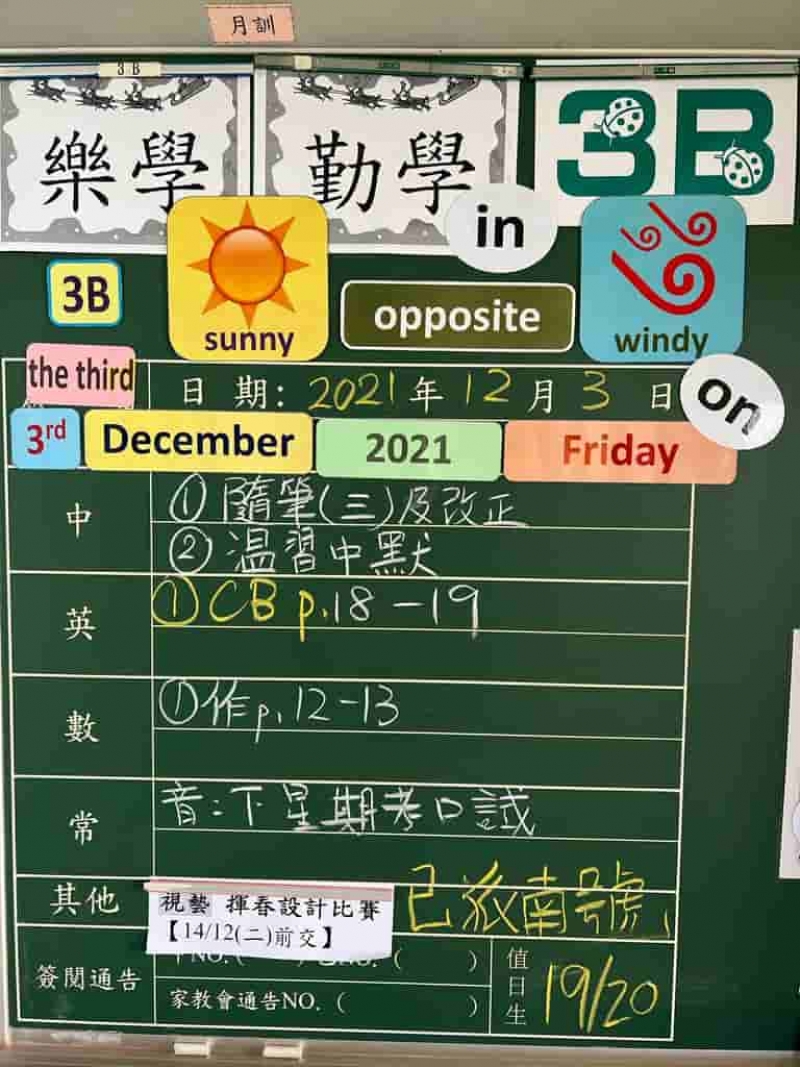 月訓
3B
樂學
勤學
3B
in
3B
sunny
opposite
windy
the third
日期: 2021年12月3日
on
3rd December 2021 Friday
中
①隨筆(三)及改正
②温習中默
英
①CB p.18-19
數
①作p.12-13
常
音:下星期考口試
其他
視藝 揮春設計比賽
【14/12(二)前交】
簽閱通告
NO. ( ) ( )
家教會通告NO. ( )
值日生
19/20